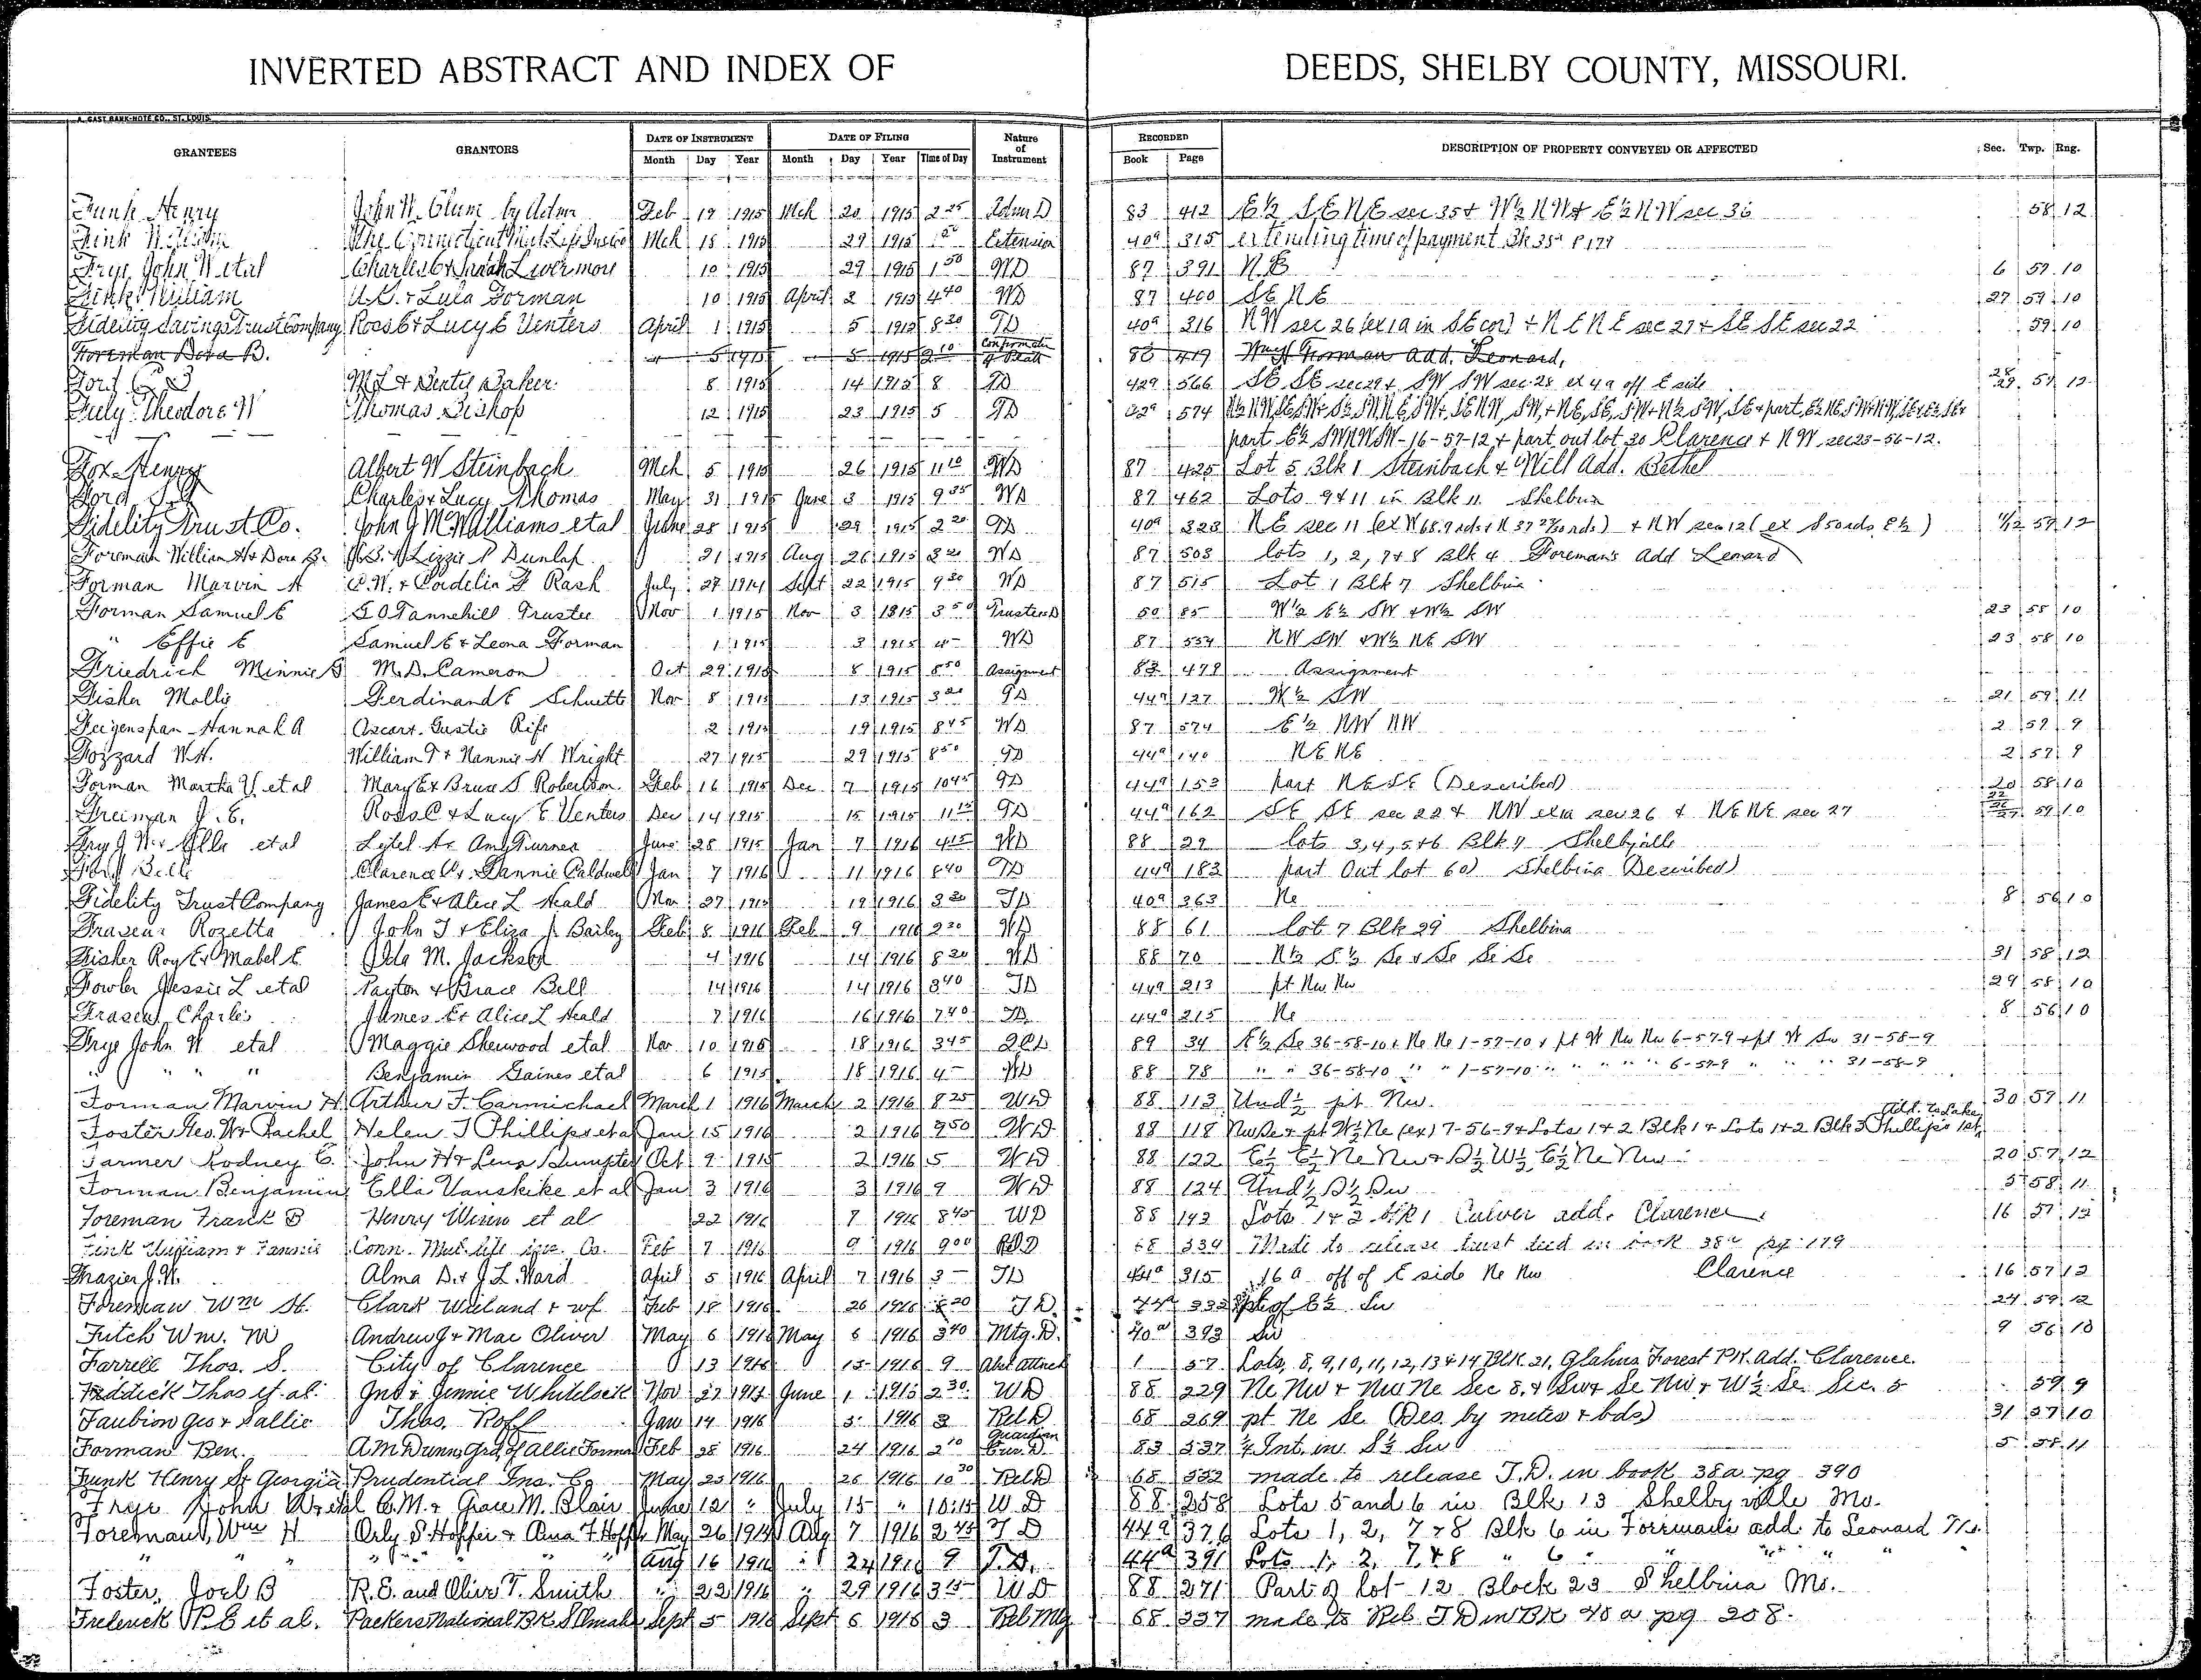 INVERTED ABSTRACT AND INDEX OF DEEDS, SHELBY COUNTY, MISSOURI.
A. GAST BANK-NOTE CO., ST. LOUIS.
GRANTEES GRANTORS DATE OF INSTRUMENT DATE OF FILING Nature of Instrument RECORDED DESCRIPTION OF PROPERTY CONVEYED OR AFFECTED Sec. Twp. Rng.
Month Day Year Month Day Year Time of Day Book Page
Funk Henry John W. by Adm Feb 19 1915 Mch 20 1915 2 25 Adm D 83 412 E½ SE NE sec 35 & W½ NW & E½ NW sec 36 58 12
Fink William The Connecticut Mut Life Ins Co Mch 15 1915 29 1915 Extension 40a 315 extending time of payment Bk 35a P 179
Frye John W etal Charles E & Sarah Livermore 10 1915 29 1915 1 50 WD 87 391 6 57 10
Fink William & Lula Forman 10 1915 April 2 1915 4 40 WD 87 400 SE NE 27 59 10
Fidelity Savings Trust Company Ross C & Lucy E Venters April 1 1915 5 1915 8 20 TD 40a 316 NW sec 26 (ex 1a in SE cor) & NE NE sec 27 & SE SE sec 22 59 10
Foreman Dora B. 5 1915 5 1915 2 10 417 Wm H Foreman add. Leonard,
M L & Baker 8 1915 14 1915 8 TD 42a 566 SE SE sec 29 & SW SW sec 28 ex 4a off E side 28 29 57 12
July Theodore W Thomas Bishop 12 1915 23 1915 5 TD 574
part E½ SW NW SW-16-57-12 & part out lot 30 Clarence & NW sec 23-56-12.
Fox Henry Albert W Steinbach Mch 5 1915 26 1915 11 10 WD 87 425 Lot 5 Blk 1 Steinbach & Will Add. Bethel
Ford Charles & Lucy Thomas May 31 1915 June 3 1915 9 35 WD 87 462 Lots 9 & 11 in Blk 11 Shelbina
Fidelity Trust Co. John J McWilliams etal June 28 1915 29 1915 2 20 TD 40a 323 NE sec 11 (ex W 68.9 rds & N 37 rds) & NW sec 12 (ex S 50 rds E½) 11/12 57 12
Foreman William H & Dora B. & Lizzie P Dunlap 21 1915 Aug 26 1915 8 20 WD 87 503 lots 1, 2, 7 & 8 Blk 4 Foreman's Add Lenard
Forman Marvin A C. W. & Cordelia F Rash July 27 1914 Sept 22 1915 9 20 WD 87 515 Lot 1 Blk 7 Shelbina
Forman Samuel E S O Tannehill Trustee Nov 1 1915 Nov 3 1815 3 50 Trustee D 50 85 W½ E½ SW & W½ SW 23 58 10
" Effie E Samuel E & Leona Forman 1 1915 3 1915 4 - WD 87 554 NW SW & W½ NE SW 23 58 10
Friedrich Minnie M. D. Cameron Oct 29 1915 8 1915 8 50 Assignment 83 479 Assignment
Fisher Mollie Ferdinand E Schuette Nov 8 1915 13 1915 3 20 TD 44a 127 W½ SW 21 59 11
Feigenspan Hannah A Oscar & Gustie Rife 2 1915 19 1915 8 45 WD 87 574 E½ NW NW 2 57 9
Fozzard W.H. William T & Nannie H Wright 27 1915 29 1915 8 50 TD 44a 140 NE NE 2 57 9
Forman Martha V. et al Mary E & Bruce S Robertson Feb 16 1915 Dec 7 1915 10 45 TD 44a 153 part NE SE (Described) 20 58 10
Freeman J. E. Ross C & Lucy E Venters Dec 14 1915 15 1915 11 15 TD 44a 162 SE SE sec 22 & NW ex 1a sec 26 & NE NE sec 27 22 26 27 59 10
Frye J W & Ella etal Lytel A & Amy Turner June 28 1915 Jan 7 1916 4 15 WD 88 29 lots 3, 4, 5 & 6 Blk 4 Shelbyville
Belle Clarence C & Fannie Caldwell Jan 7 1916 11 1916 8 40 TD 44a 183 part Out lot 60 Shelbina Described)
Fidelity Trust Company James E & Alice L Heald Nov 27 1915 19 1916 3 20 TD 40a 363 Ne 8 56 10
Frasear Rozetta John T & Eliza J Bailey Feb 8 1916 Feb 9 1916 2 30 WD 88 61 lot 7 Blk 29 Shelbina
Fisher Roy E & Mabel E Ida M. Jackson 4 1916 14 1916 8 20 WD 88 70 N½ S½ Se & Se Se Se 31 58 12
Fowler Jessie L etal Payton & Grace Bell 14 1916 14 1916 3 40 TD 44a 213 pt Nw Nw 29 58 10
Frasear Charles James E & Alice L Heald 7 1916 16 1916 7 40 TD 44a 215 Ne 8 56 10
Frye John W etal Maggie Sherwood etal Nov 10 1915 18 1916 3 45 QCD 89 34 E½ Se 36-58-10 & Ne Ne 1-57-10 & pt W Nw Nw 6-57-9 & pt W Sw 31-58-9
" " " Benjamin Gaines etal 6 1915 18 1916 4 - WD 88 78 " " 36-58-10 " " 1-57-10 " " " " " 6-57-9 " " " 31-58-9
Forman Marvin H Arthur F. Carmichael March 1 1916 March 2 1916 8 25 WD 88 113 Und ½ pt Nw. 30 57 11
Foster Geo. W & Rachel Helen J Phillips et al Jan 15 1916 2 1916 9 50 WD 88 118 Nw Se & pt W½ Ne (ex) 7-56-9 & Lots 1 & 2 Blk 1 & Lots 1 & 2 Blk 3 Phillips 1st Add. to Lake
Farmer Rodney C. John H & Lena Sumpter Oct 9 1915 2 1916 5 WD 88 122 E½ E½ Ne Nw & S½ W½ E½ Ne Nw 20 57 12
Forman Benjamin Ella Vanskike et al Jan 3 1916 3 1916 9 WD 88 124 Und ½ S½ Sw 5 58 11
Foreman Frank B Henry Wiren et al 22 1916 7 1916 8 45 WD 88 143 Lots 1 & 2 Blk 1 Culver add. Clarence 16 57 12
Fink William & Fannie Conn. Mut. life ins. Co. Feb 7 1916 9 1916 9 00 Rel D 68 334 Made to release trust deed in book 38a pg 179
Frazier J. W. Alma D. & J. L. Ward April 5 1916 April 7 1916 3 - TD 44a 315 16 a off of E side Ne Nw Clarence 16 57 12
Foreman Wm H. Clark Wieland & wf Feb 18 1916 26 1916 8 20 T D. 44a 332 pt of E½ Sw 24 59 12
Futch Wm. M Andrew J & Mae Oliver May 6 1916 May 6 1916 3 40 Mtg. D. 40a 393 Sw 9 56 10
Farrell Thos. S. City of Clarence 13 1916 15 1916 9 1 57 Lots, 8, 9, 10, 11, 12, 13 & 14 Blk 21, Glahns Forest PK. Add. Clarence.
Faddick Thos et al. Jno & Jennie Whitelock Nov 27 1914 June 1 1915 2 30 WD 88 229 Ne Nw & Nw Ne Sec 8. & Sw & Se Nw & W½ Se Sec. 5 59 9
Faubion Geo & Sallie Thos. Roff Jan 14 1916 5 1916 3 Rel D 68 269 pt. Ne Se (Des. by metes & bds) 31 57 10
Forman Ben. A M Dunn Grd. of Allie Forman Feb 28 1916 24 1916 2 10 Guardian D 83 537 ¼ Int. in S½ Sw 5 58 11
Funk Henry St Georgia Prudential Ins. Co May 23 1916 26 1916 10 30 Rel D 68 332 made to release T.D. in book 38a pg 390
Frye John W etal C. M. & Grace M. Blair June 12 " July 15 " 10:15 W. D 88 258 Lots 5 and 6 in Blk 13 Shelbyville Mo.
Foreman, Wm H Orly S Hoffer & Ana F Hoffer May 26 1914 Aug 7 1916 2 45 T D 44a 376 Lots 1, 2, 7 & 8 Blk 6 in Foreman's add to Leonard Mo.
" " " " " " " Aug 16 1916 " 24 1916 9 T. D. 44a 391 Lots 1, 2, 7, & 8 " 6 " " " "
Foster, Joel B R. E. and Olive T. Smith " 22 1916 " 29 1916 3 15 W D 88 271 Part of lot 12 Block 23 Shelbina Mo.
Frederick P. E et al. Packers National BK. S Omaha Sept 5 1916 Sept 6 1916 3 Rel Mtg 68 337 made to Rel. T D in BK 40 a pg 208.